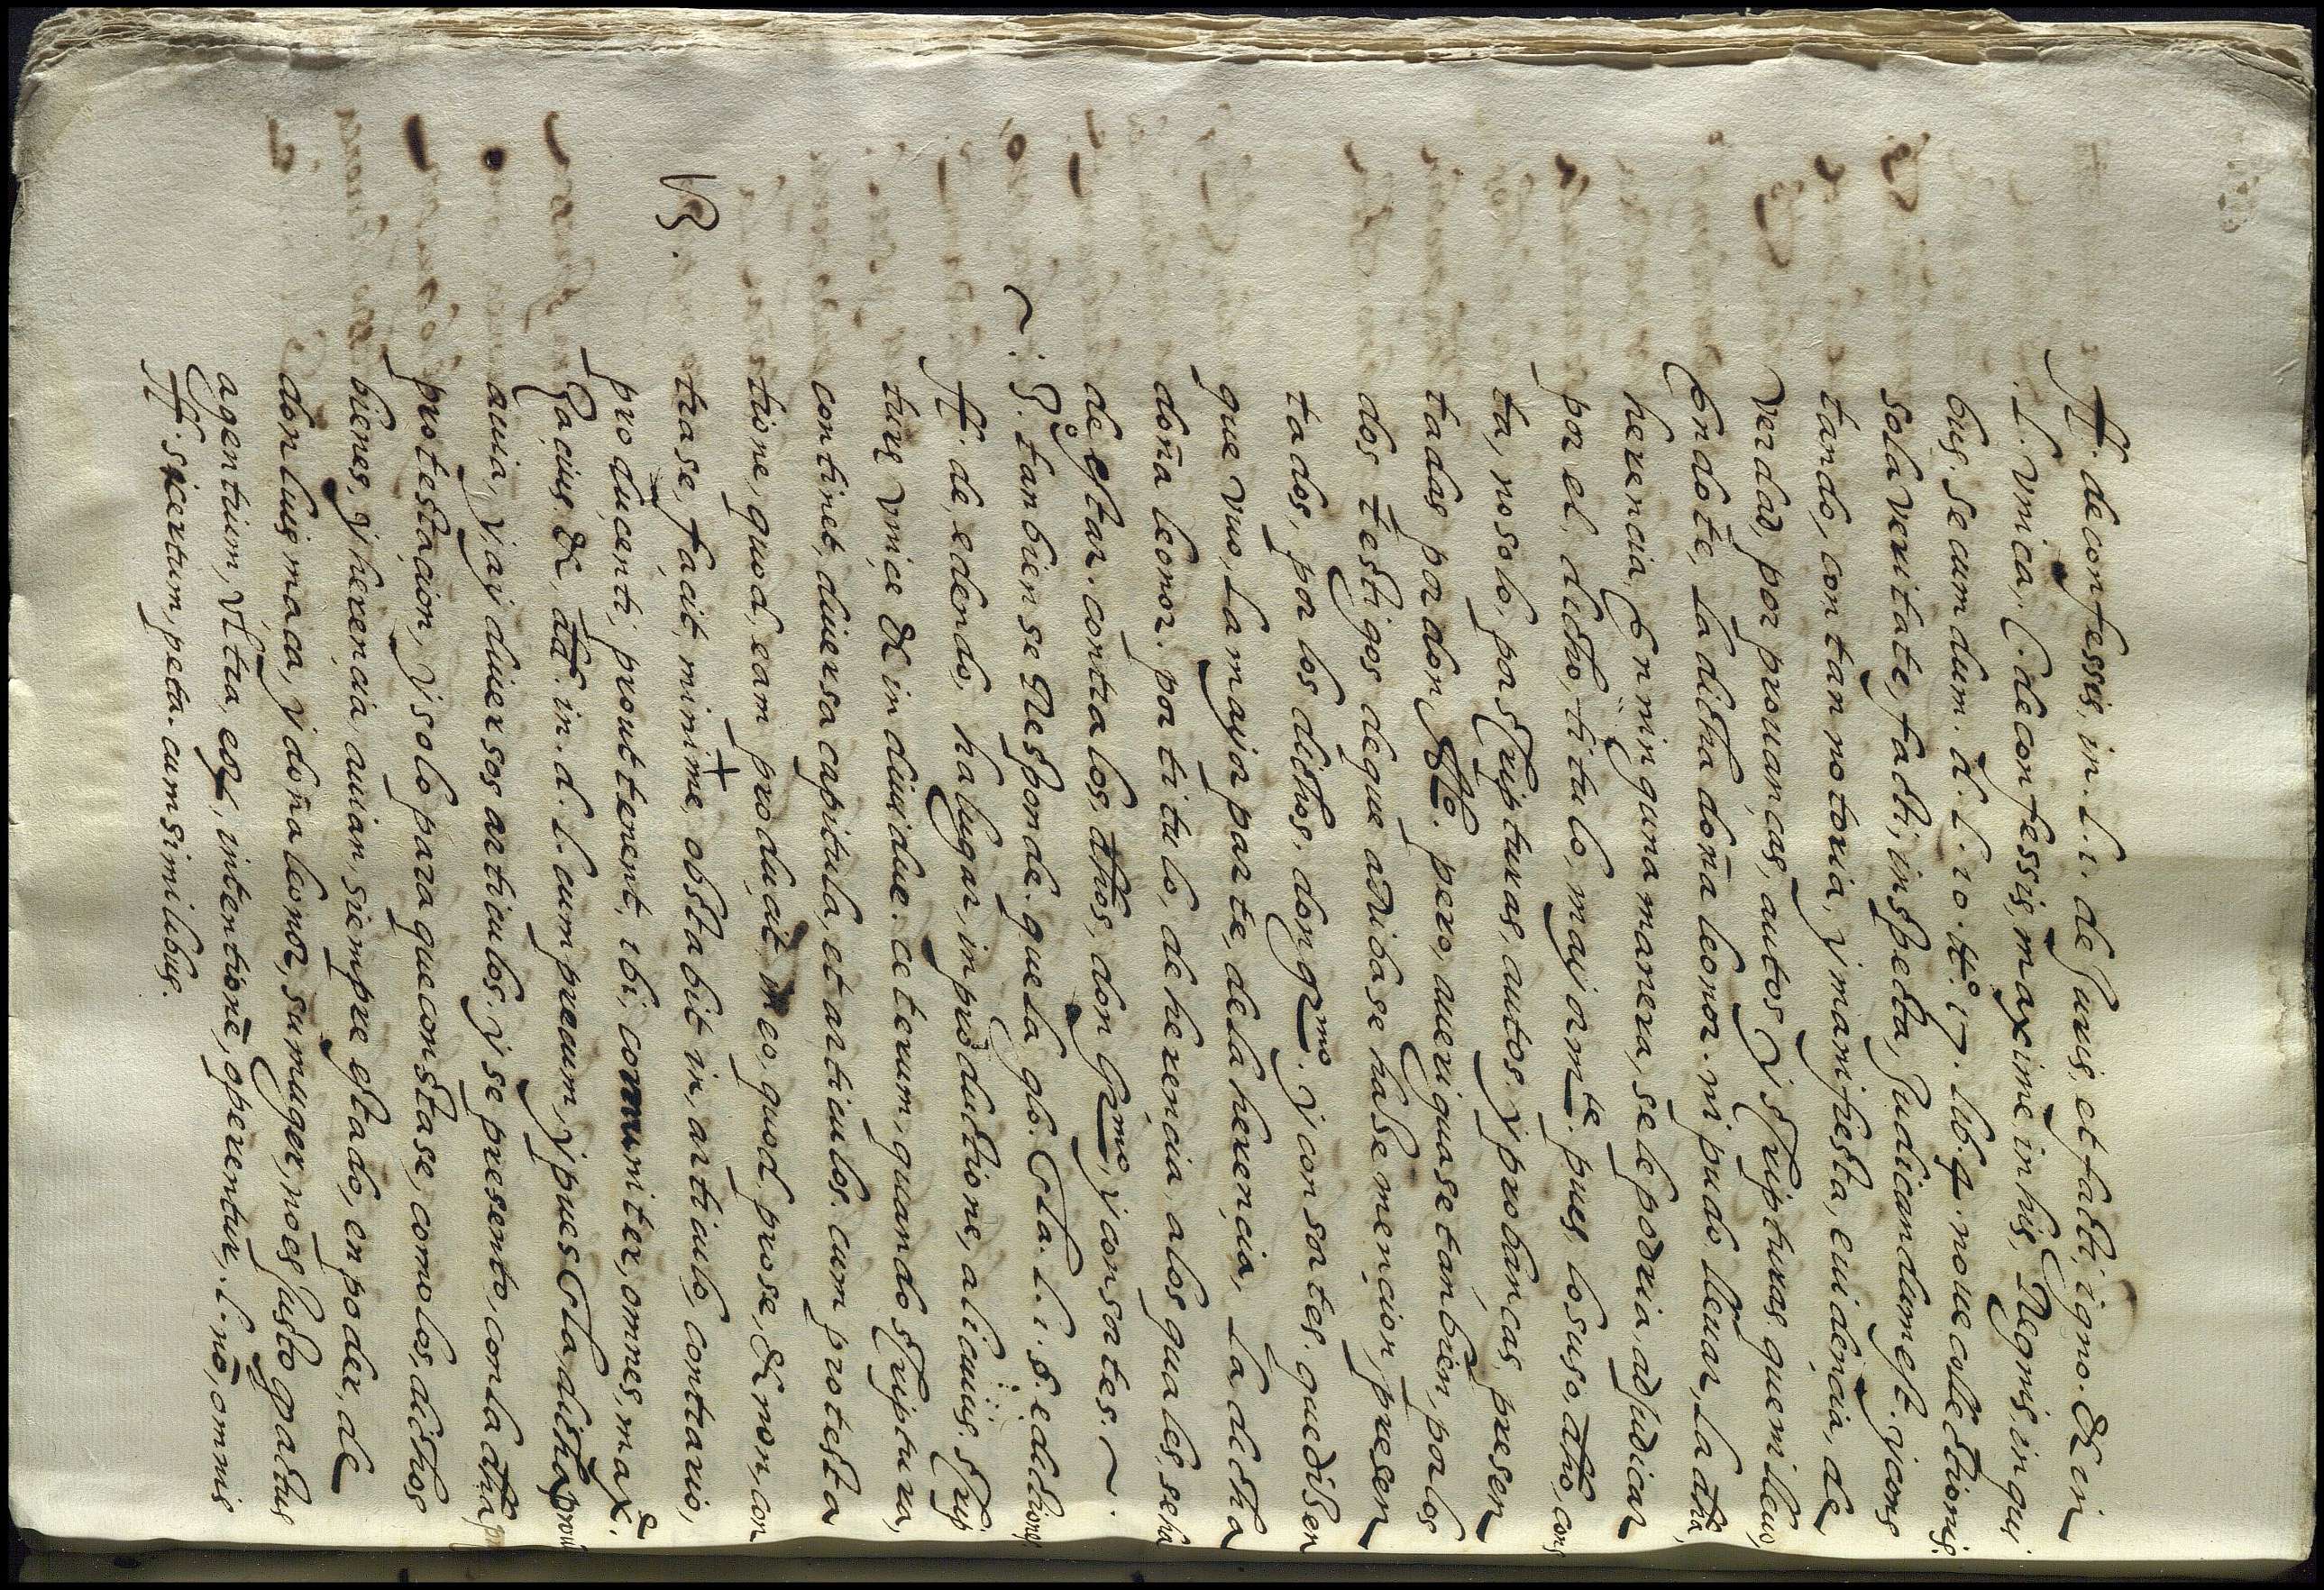 ff. de confessis, in. l. i. de Juris, et facti, igno. & in
.l. vnica, C. de confessis, maxime, in his, Regnis, in qui
bus, secundum. d. l. 10. tt.º 17. lib. 4. noue collectionis.
sola veritate, facti, inspecta, Judicandum est. y cons
tando, con tan notoria, y manifiesta, euidencia, de
verdad, por prouanças, autos y scripturas, que mi leuo,
en dote, la dicha doña leonor. ni pudo lleuar, la dha
herencia, en ninguna manera, se le podria, adJudicar
por el dicho, titulo, mayormte. pues, lo suso, dho, cons
ta, no solo, por scripturas, autos. y probanças, presen
tadas por don Alº. pero, aueriguase tambien, por los
dos testigos de que arriba se haze mencion, presen
tados, por los dichos, don grmo. y consortes. que dizen
que vuo, la mayor parte, de la herencia, la dicha
doña leonor. por titulo, de herencia, a los quales, se ha
de estar. contra los, dhos, don Grmo, y consortes. ~
~ :§. tambien se Responde. que la glo. Cita. l. i. §. editiones
ff. de, edendo, ha lugar, in productione, alicuius. scrip
ture vnice & in diuidue. ceterum, quando scriptura,
continet, diuersa capitula, et articulos. cum protesta
tione, quod, eam producat, in eo, quod, pro se, & non, con
tra se, facit, minime, obstabit in, articulo, contrario,
producenti, prout tenent, ibi, comuniter, omnes, max.
Hacius. & alex. in. d. l. cum precum, y pues Cita, dicha,
auia, y ay diuersos articulos. y se presento, con la dha
protestacion, y solo para que constase, como los, dichos
bienes, y herencia, auian, siempre estado, en poder, de
don luis maca, y doña leonor, su muger, no es Justo q actus
agentium, vltra, eor, intentione, operentur,. l. nō, omnis
ff. si certum, peta. cum similibus.